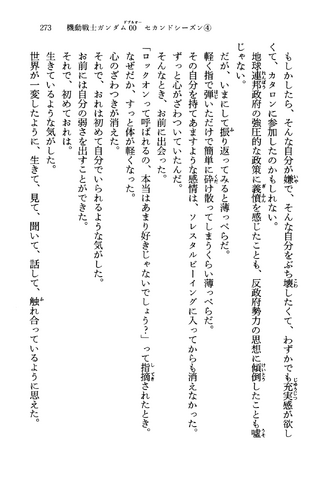 273　機動戦士ガンダム00　セカンドシーズン④
ダブルオー
もしかしたら、そんな自分が嫌で、そんな自分をぶち壊したくて、わずかでも充実感が欲し
くて、カタロンに参加したのかもしれない。
地球連邦政府の強圧的な政策に義憤を感じたことも、反政府勢力の思想に傾倒したことも嘘
じゃない。
だが、いまにして振り返ってみると薄っぺらだ。
軽く指で弾いただけで簡単に砕け散ってしまうくらい薄っぺらだ。
その自分を持てあますような感情は、ソレスタルビーイングに入ってからも消えなかった。
ずっと心がざわついていたんだ。
そんなとき、お前に出会った。
「ロックオンって呼ばれるの、本当はあまり好きじゃないでしょう？」って指摘されたとき。
なぜだか、すっと体が軽くなった。
心のざわつきが消えた。
それで、おれは初めて自分でいられるような気がした。
お前には自分の弱さを出すことができた。
それで、初めておれは。
生きているような気がした。
世界が一変したように、生きて、見て、聞いて、話して、触れ合っているように思えた。